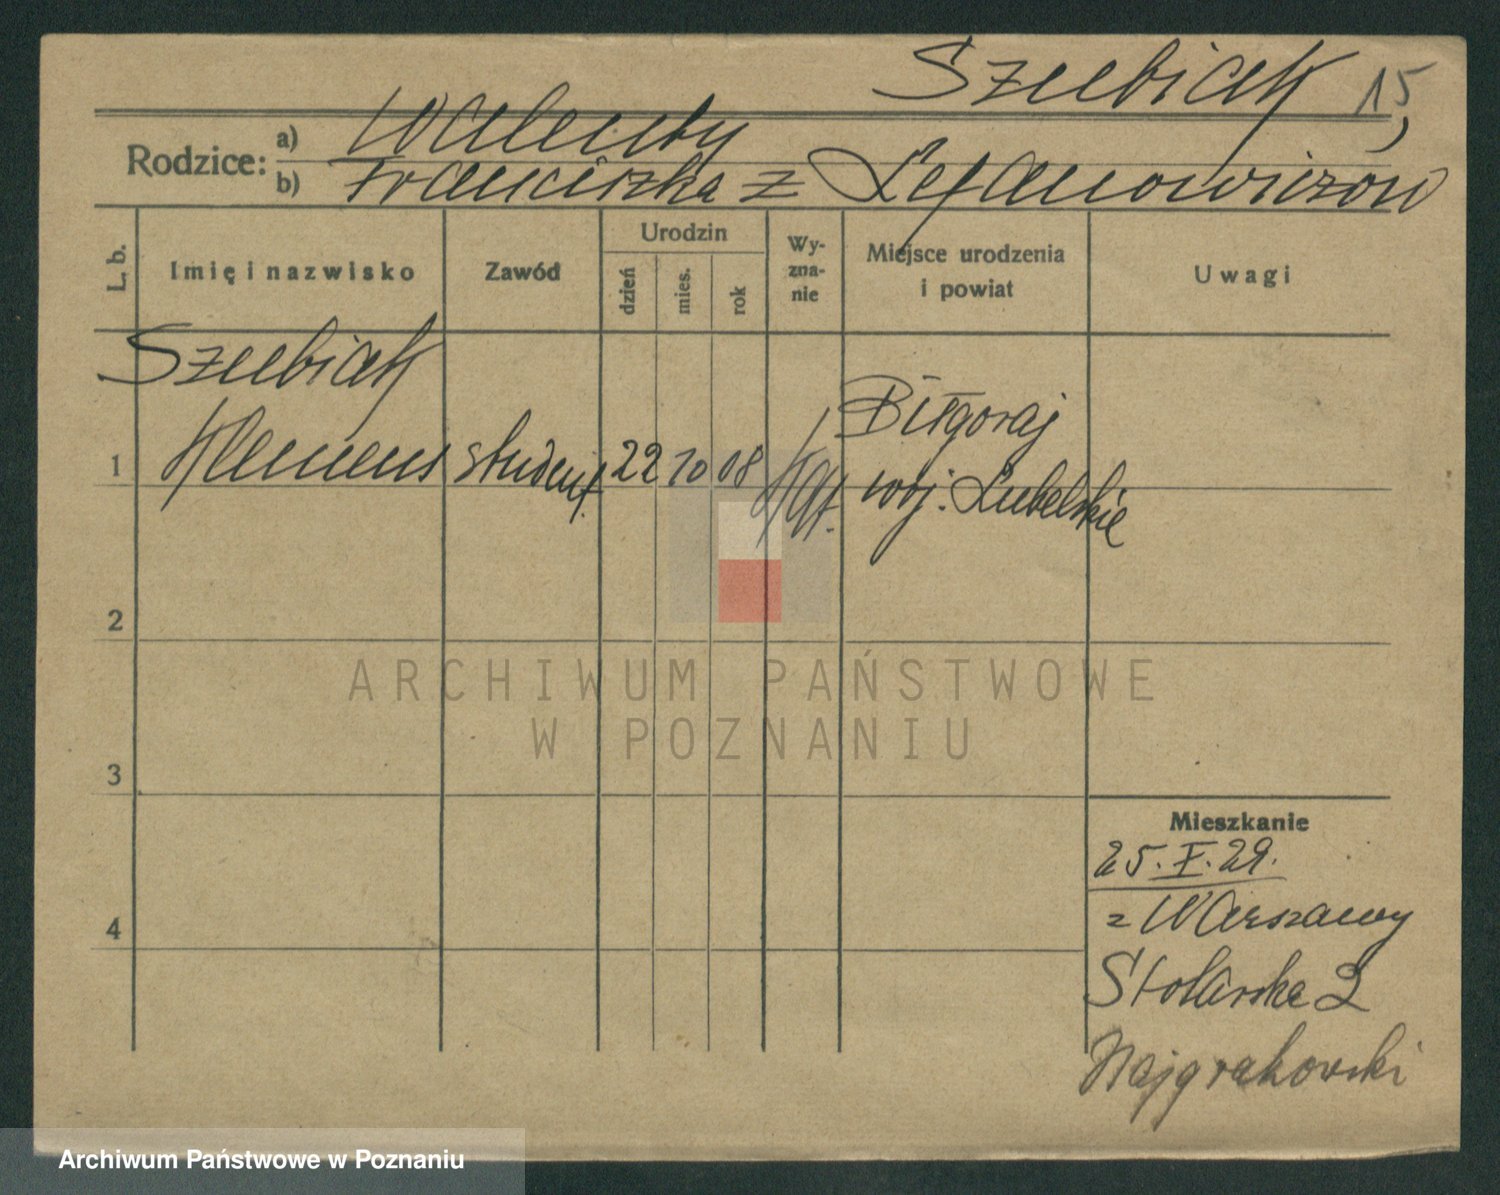 Szubiak 15
Rodzice: a) Walenty
b) Franciszka z
L. b. Imię i nazwisko Zawód Urodzin dzień mies. rok Wy-zna-nie Miejsce urodzenia i powiat Uwagi
Szubiak
1 Klemens student 22 10 08 kat. Biłgoraj
woj. Lubelskie
2
ARCHIWUM PAŃSTWOWE
W POZNANIU
3
Mieszkanie
25. X. 29.
z Warszawy
4
Stolarska 2
Archiwum Państwowe w Poznaniu